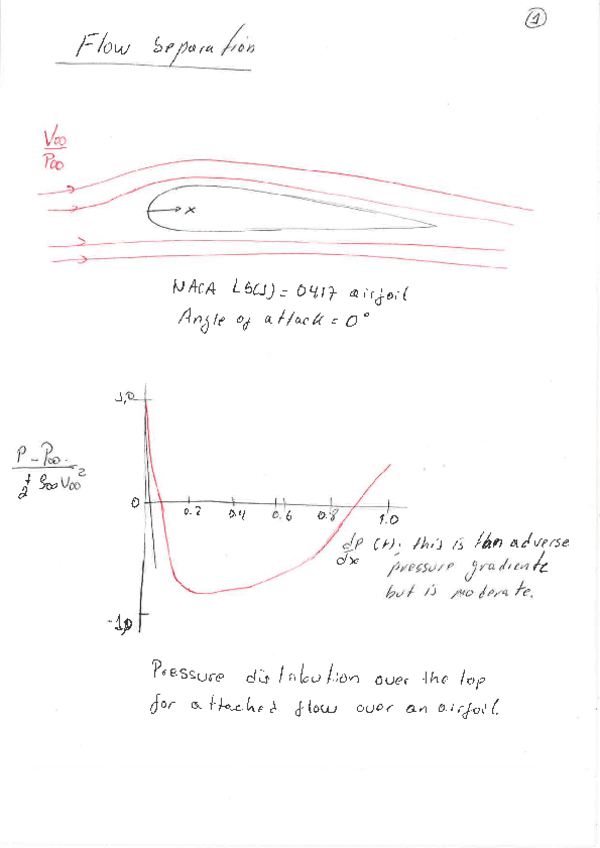 ①
Flow Separation
V∞
P∞
x
NACA LS(1) = 0417 airfoil
Angle of attack = 0°
1,0
P - P∞
½ ρ∞ V∞²
0
0.2 0.4 0.6 0.8 1.0
dp/dx (+); this is than adverse
pressure gradiente
but is moderate.
-1,0
Pressure distribution over the top
for attached flow over an airfoil.